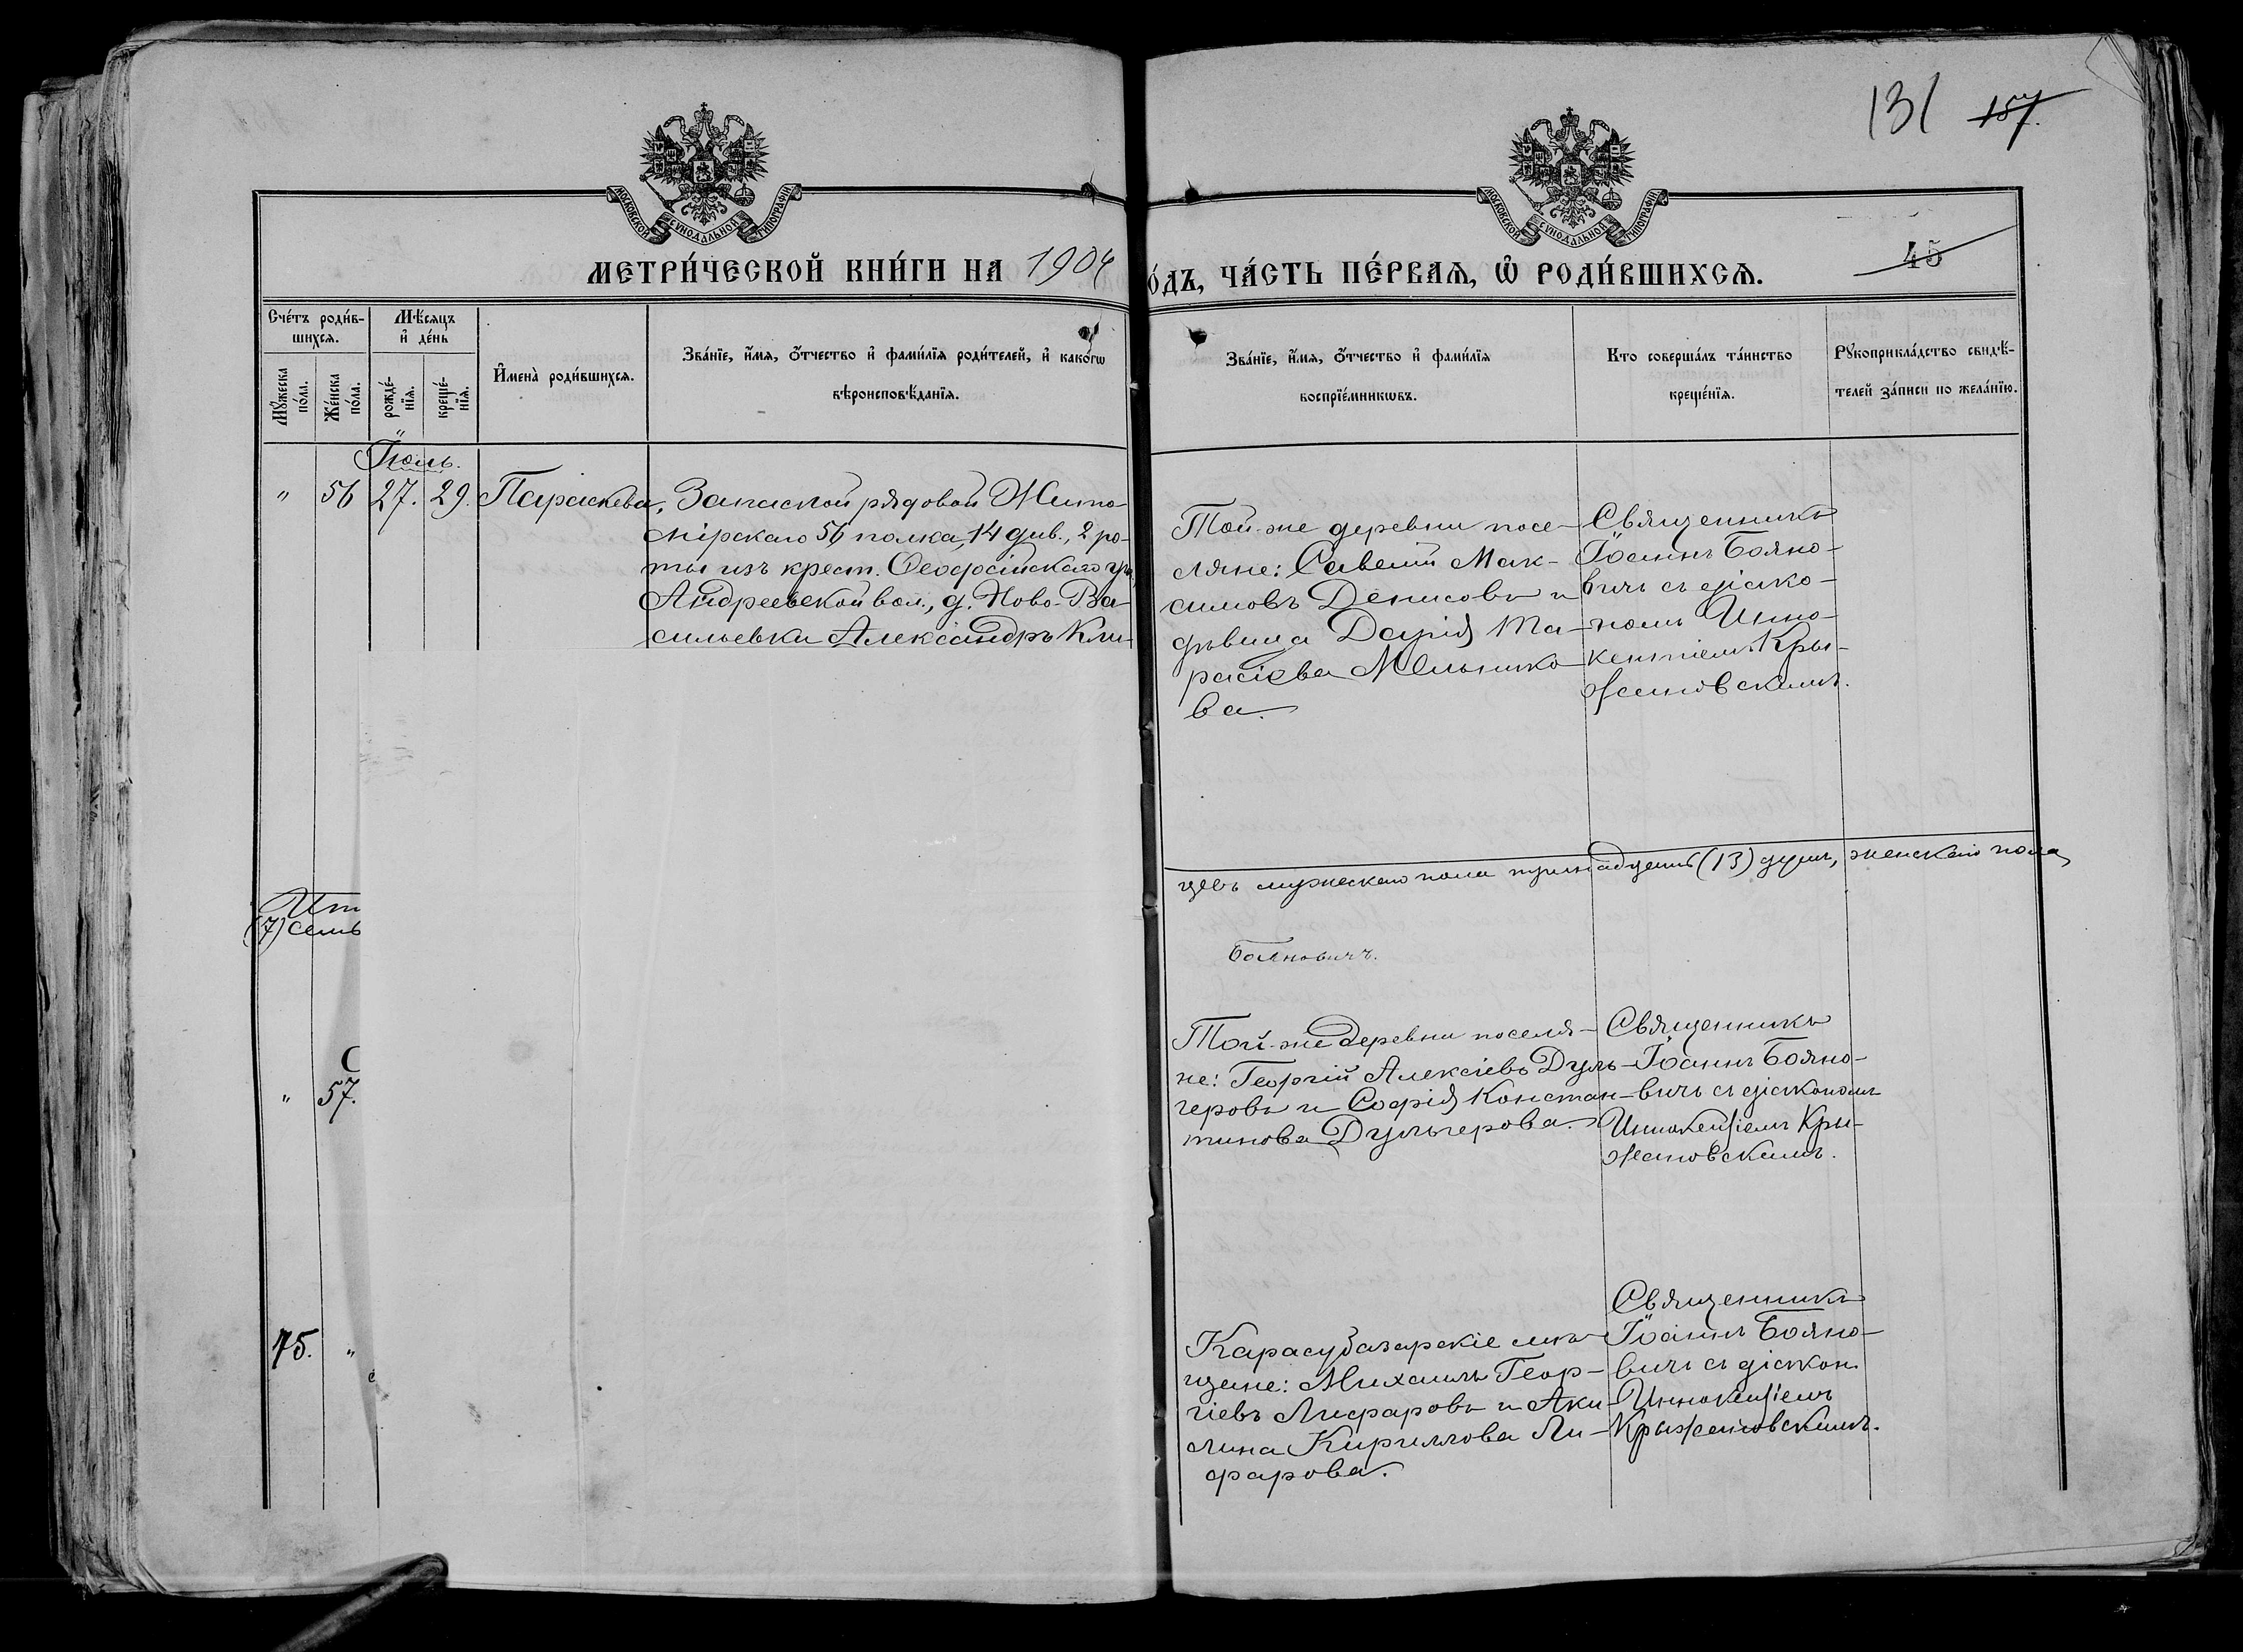 131 157.
МОСКОВСКОЙ СУНОДАЛЬНОЙ ТИПОГРАФІИ
МОСКОВСКОЙ СУНОДАЛЬНОЙ ТИПОГРАФІИ
45
МЕТРИ́ЧЕСКОЙ КНИ́ГИ НА 1904
О́ДЪ, ЧА́СТЬ ПЕ́РВАѦ, Ѽ РОДИ́ВШИХСѦ.
Сче́тъ роди́в-
шихсѧ.
Мꙋ́жеска по́ла.
Же́нска по́ла.
Мѣ́сѧцъ
и҆ де́нь
рожде́-
нїѧ.
креще́-
нїѧ.
И҆мена̀ роди́вшихсѧ.
Зва́нїе, и҆́мѧ, ѻ҆́тчество и҆ фами́лїѧ роди́телей, и҆ како́гѡ
вѣроисповѣ́данїѧ.
Зва́нїе, и҆́мѧ, ѻ҆́тчество и҆ фами́лїѧ
воспрїе́мникѡвъ.
Кто соверша́лъ та́инство
креще́нїѧ.
Рꙋкоприкла́дство свидѣ́-
телей за́писи по жела́нїю.
Іюль.
" 56 27. 29. Параскева,
Запасной рядовой Жито-
мірскаго 56 полка, 14 див., 2 ро-
ты изъ крест. Ѳеодосійскаго у.,
Андреевской вол., д. Ново-Ва-
сильевки Александръ Кли-
Той-же деревни посе-
ляне: Савелій Мак-
симовъ Денисовъ и
дѣвица Дарія Та-
расіева Мельнико-
ва.
Священникъ
Іоаннъ Бояно-
вичъ съ діако-
номъ Инно-
кентіемъ Кры-
жановскимъ.
Ит
(7) семь
цевъ мужескаго пола тринадцать (13) душъ, женскаго пола
Бояновичъ.
С
" 57.
Той-же деревни поселя-
не: Георгій Алексіевъ Дуль-
геровъ и Софія Констан-
тинова Дульгерова.
Священникъ
Іоаннъ Бояно-
вичъ съ діакономъ
Иннокентіемъ Кры-
жановскимъ.
75. "
Карасубазарскіе мѣ-
щане: Михаилъ Геор-
гіевъ Лифаровъ и Аки-
лина Кириллова Ли-
фарова.
Священникъ
Іоаннъ Бояно-
вичъ съ діакон.
Иннокентіемъ
Крыжановскимъ.